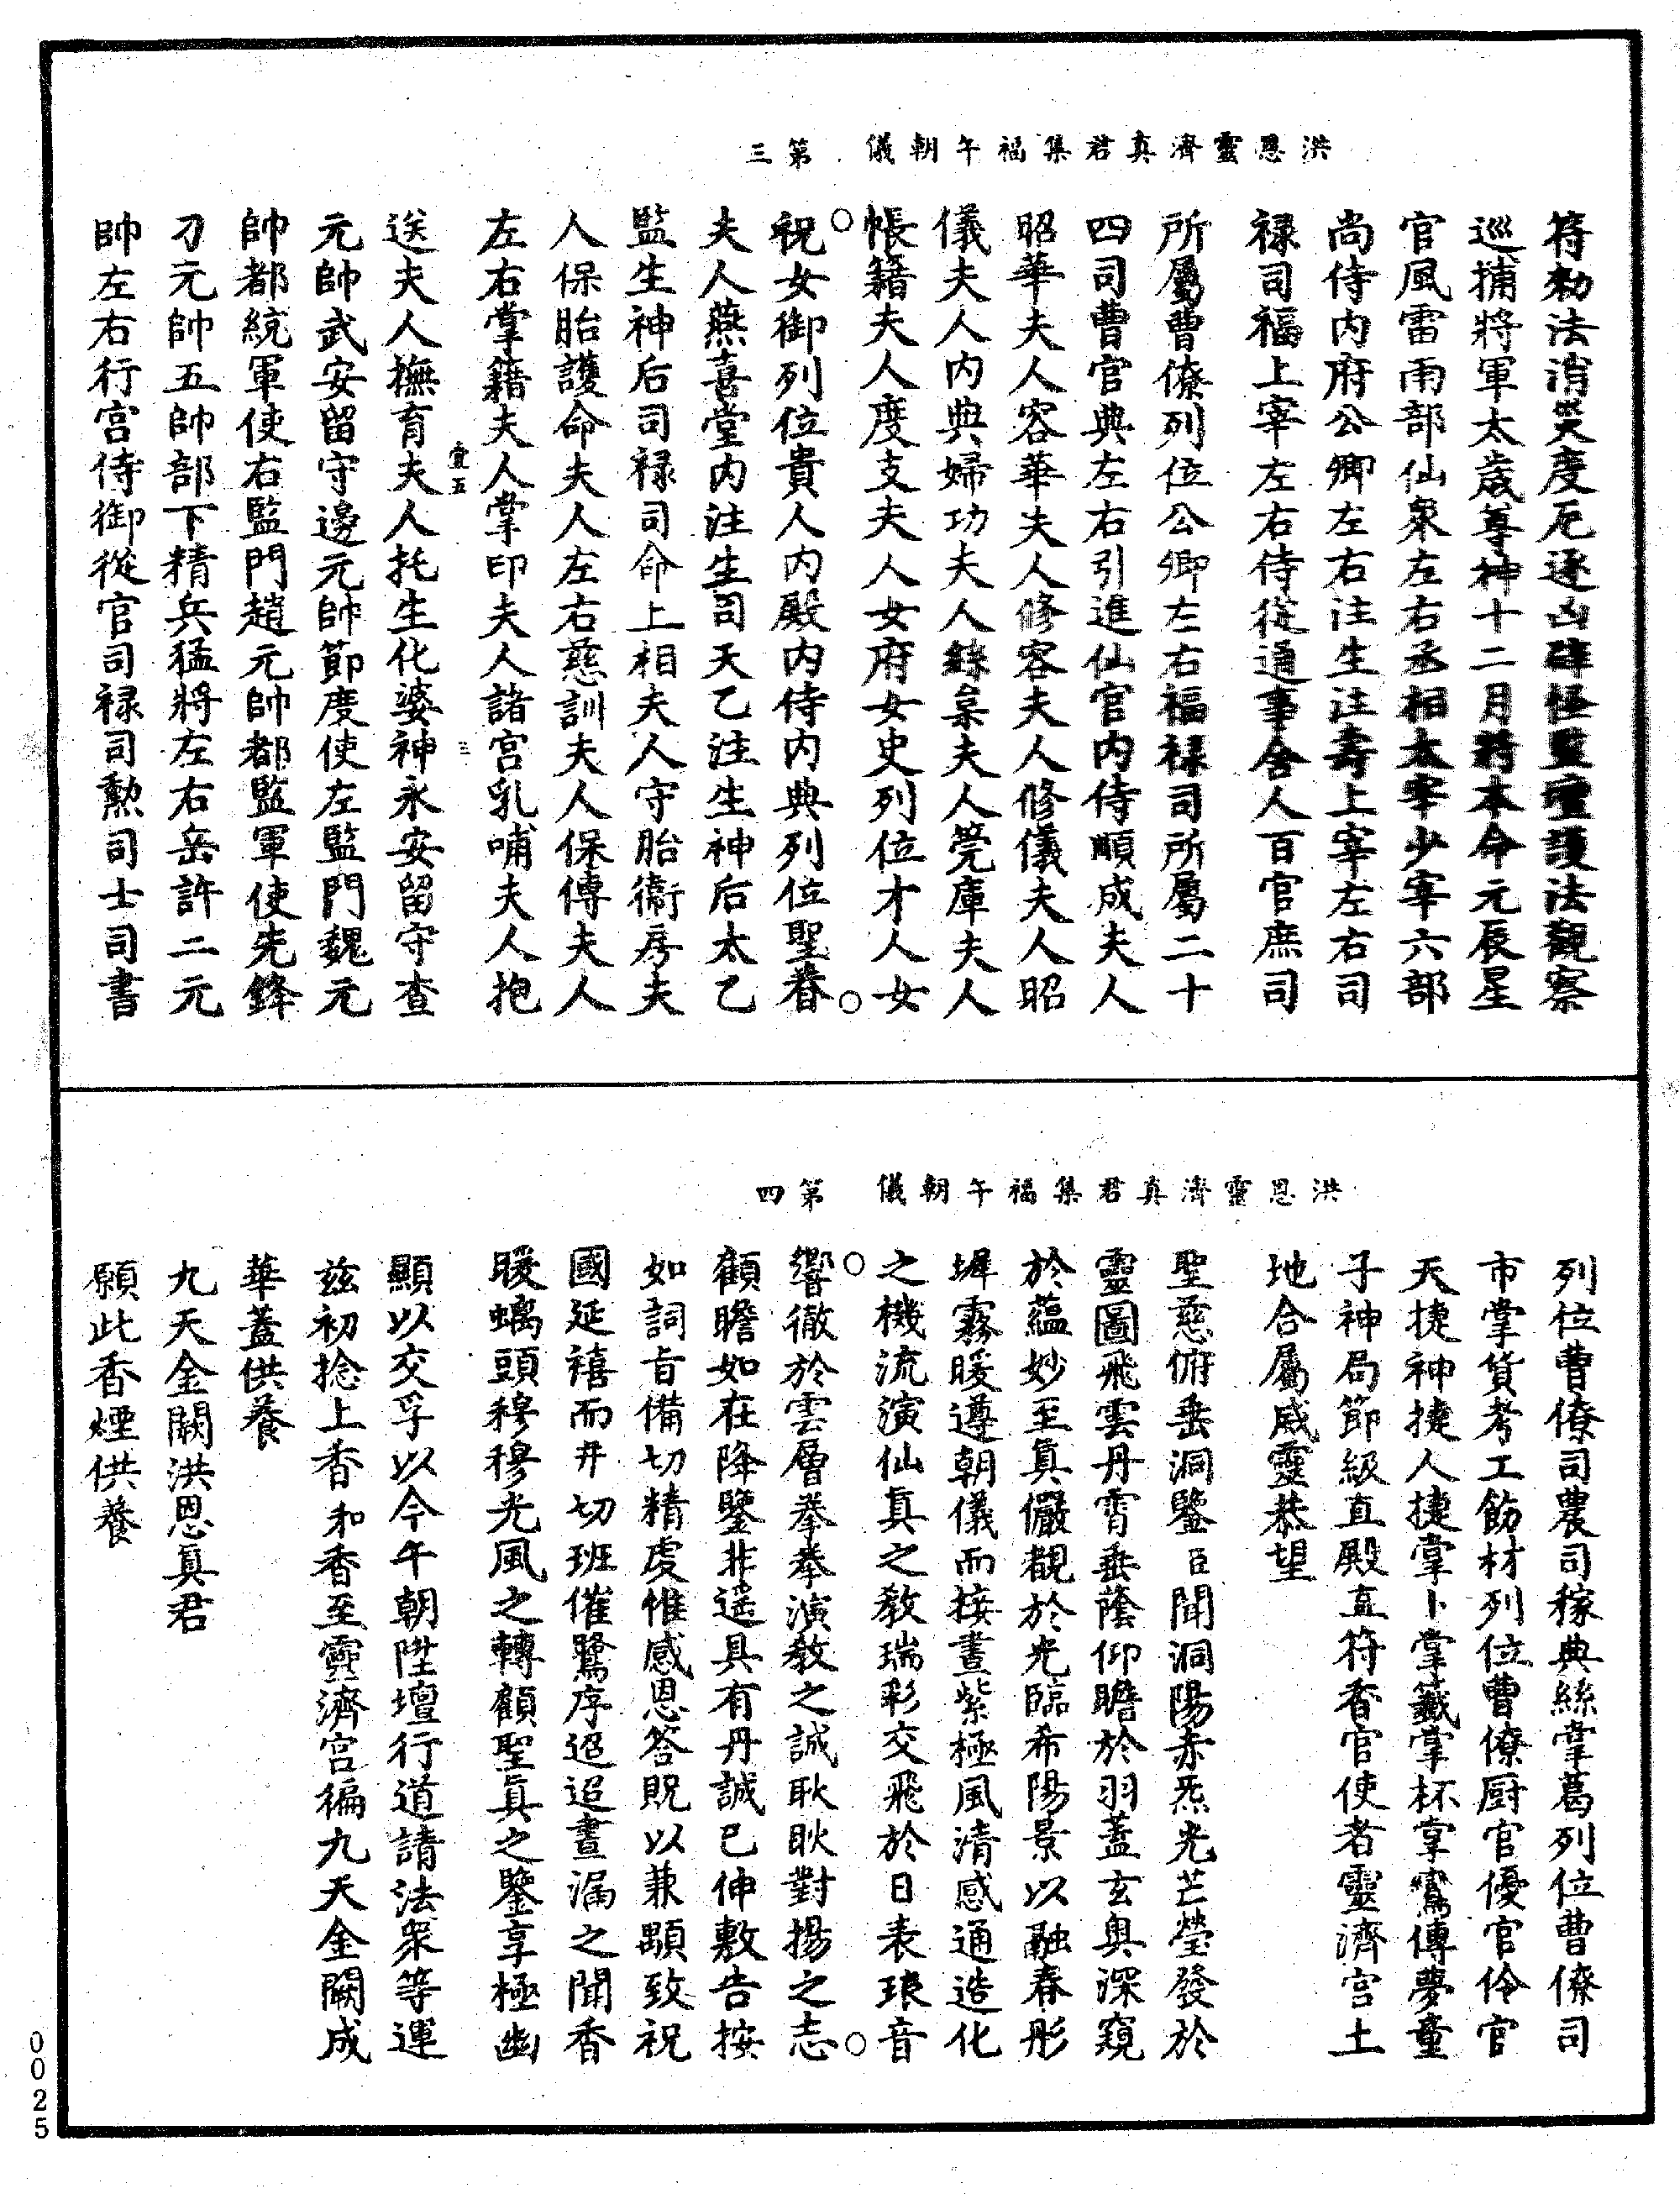 洪恩靈濟真君集福午朝儀　第三
符勑法消災度厄逐凶辟怪監壇護法觀察
巡捕將軍太歲尊神十二月將本命元辰星
官風雷雨部仙衆左右丞相太宰少宰六部
尚侍内府公卿左右注生注壽上宰左右司
禄司福上宰左右侍從通事舍人百官庶司
所屬曹僚列位公卿左右福禄司所屬二十
四司曹官典左右引進仙官内侍順成夫人
昭華夫人容華夫人修容夫人修儀夫人昭
儀夫人内典婦功夫人絲枲夫人筦庫夫人
帳籍夫人度支夫人女府女史列位才人女
祝女御列位貴人内殿内侍内典列位聖眷
夫人燕喜堂内注生司天乙注生神后太乙
監生神后司禄司命上相夫人守胎衞房夫
人保胎護命夫人左右慈訓夫人保傅夫人
左右掌籍夫人掌印夫人諸宫乳哺夫人抱
壹五
三
送夫人撫育夫人托生化婆神永安留守查
元帥武安留守邊元帥節度使左監門魏元
帥都統軍使右監門趙元帥都監軍使先鋒
刁元帥五帥部下精兵猛將左右岳許二元
帥左右行宫侍御從官司禄司勲司士司書
洪恩靈濟真君集福午朝儀　第四
列位曹僚司農司稼典絲掌葛列位曹僚司
市掌貨考工飭材列位曹僚厨官優官伶官
天捷神捷人捷掌卜掌籤掌杯掌鸞傳夢童
子神局節級直殿直符香官使者靈濟宫土
地合屬威靈恭望
聖慈俯垂洞鑒臣聞洞陽赤炁光芒瑩發於
靈圖飛雲丹霄垂蔭仰瞻於羽蓋玄奥深窺
於蘊妙至真儼覩於光臨希陽景以融春彤
墀霧暖遵朝儀而接晝紫極風清感通造化
之機流演仙真之教瑞彩交飛於日表琅音
響徹於雲層拳拳演教之誠耿耿對揚之志
顧瞻如在降鑒非遥具有丹誠已伸敷告按
如詞旨備切精虔惟感恩答貺以兼顯致祝
國延禧而并切班催鷺序迢迢晝漏之聞香
暖螭頭穆穆光風之轉顧聖真之鑒享極幽
顯以交孚以今午朝陞壇行道請法衆等運
兹初捻上香和香至靈濟宫徧九天金闕成
華蓋供養
九天金闕洪恩真君
願此香煙供養
0025